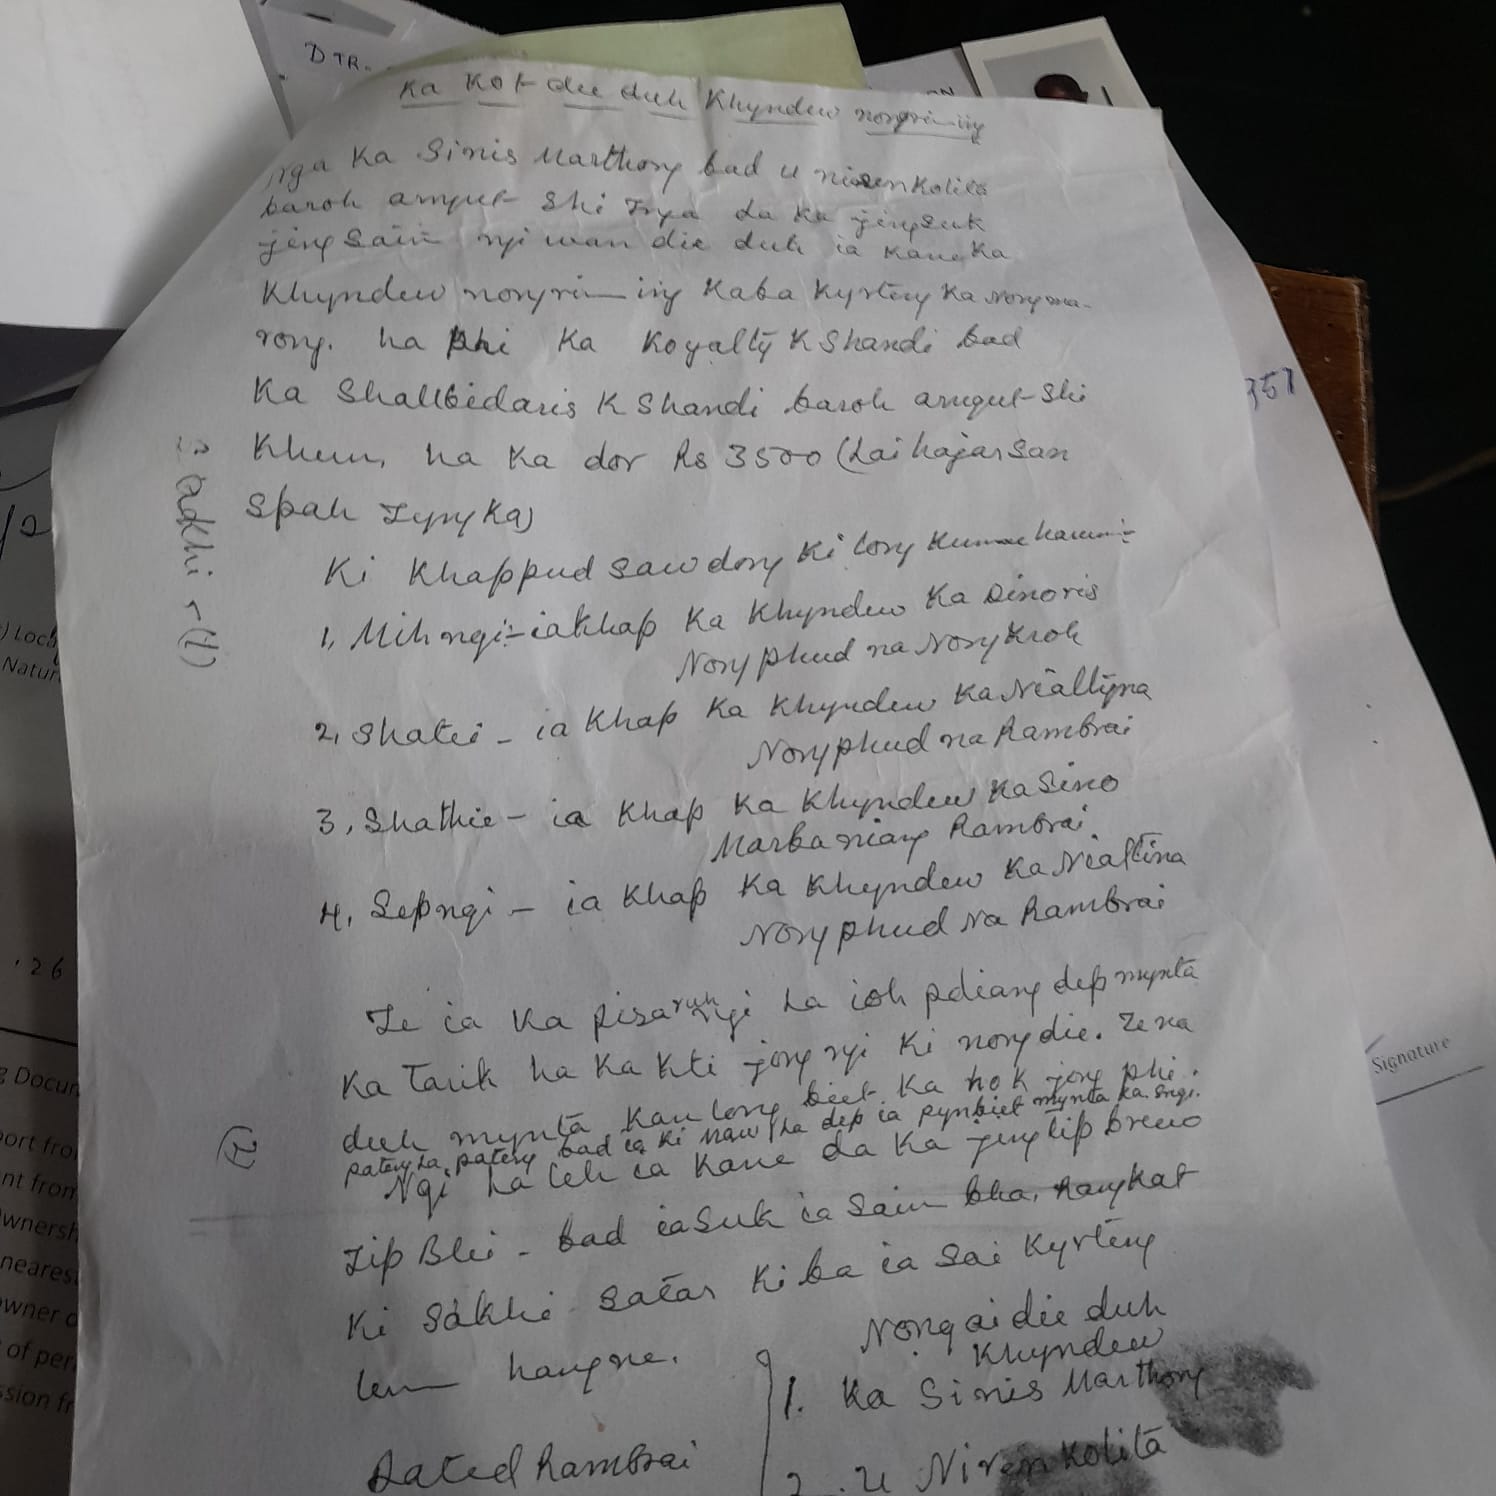 DTR.
Ka Kot die duh Khyndew nongri-iing
Nga Ka Sinis Marthong bad u niren Kolita
baroh arngut Shi Tnga da ka jingsuk
jing Sain ngi wan die duh ia Kane Ka
Khyndew nongri-iing Kaba Kyrteng Ka Nongma-
rong. ha phi Ka Royalty K Shandi bad
Ka Shallbidaris K Shandi baroh arngut Shi
Khun, ha Ka dor Rs 3500 (Lai hajar San
Spah Tyngka)
Ki Khappud Sawdong Ki long Kumne harum:-
1, Mih ngi:- ia Khap Ka Khyndew Ka Dinoris
Nongphud na Nongkroh
2, Shatei - ia Khap Ka Khyndew Ka Nialtyna
Nongphud na Rambrai
3, Shathie - ia Khap Ka Khyndew Ka Sino
Marbaniang Rambrai
4, Sepngi - ia Khap Ka Khyndew Ka Nialtina
Nongphud Na Rambrai
Te ia Ka Pisa ruh ngi La ioh pdiang dep mynta
Ka Tarik ha Ka Kti jong ngi Ki nongdie. Te na
duh mynta Kan long beit Ka hok jong phi.
pateng La pateng bad ia Ki Maw La dep ia pynbeit mynta ka Sngi.
Ngi La leh ia Kane da Ka jingtip briew
Tip Blei - bad ia Suk ia Sain bha, hangkat
Ki Sakhi Satar Ki ba ia Sai Kyrteng
lem hangne.
Nongai die duh
Khyndew
1. Ka Sinis Marthong
2. U Niren Kolita
Dated Rambrai
Sakhi - (1)
(2)
357
Signature
) Loca
Natur
.26
g Docum
port fro
nt from
Ownersh
neares
owner o
of per
ssion fr